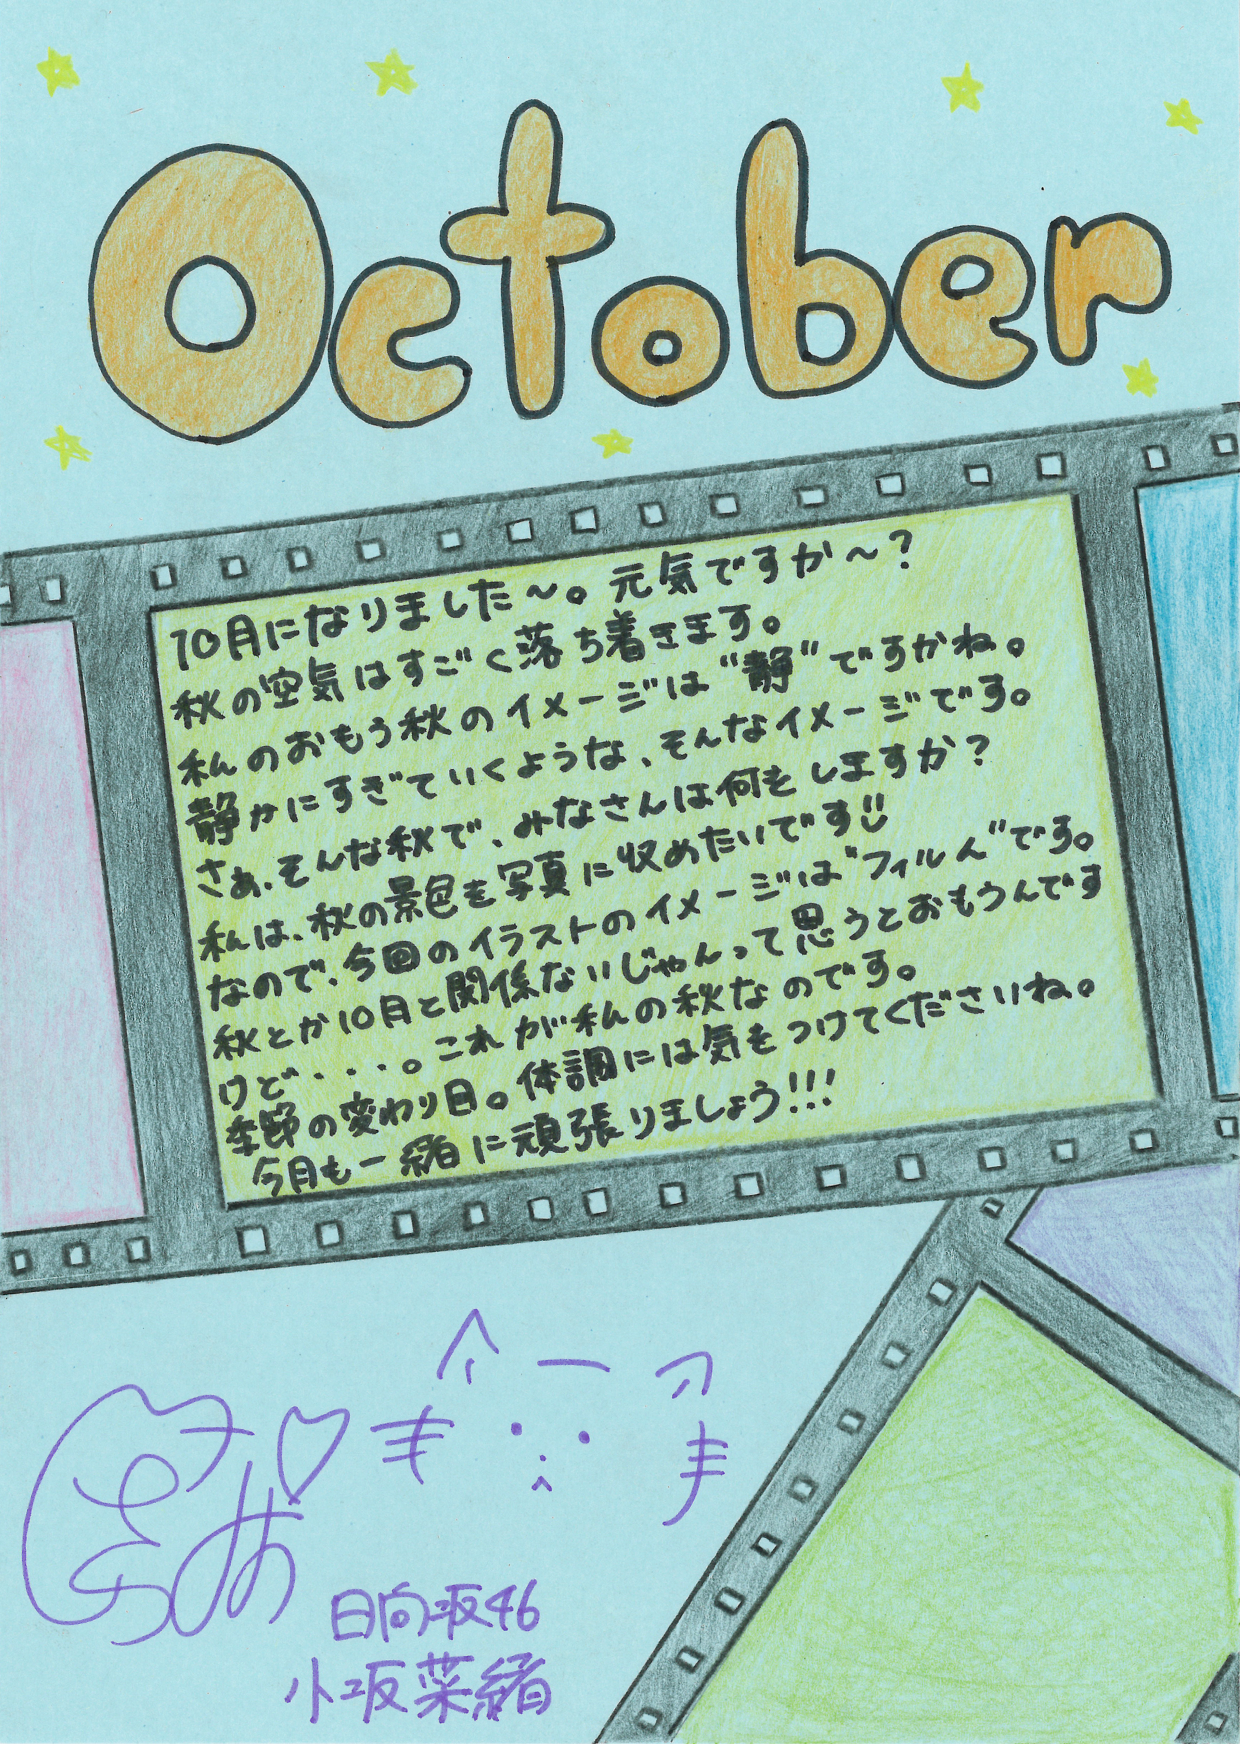 October
10月になりました～。元気ですか～?
秋の空気はすごく落ち着きます。
私のおもう秋のイメージは“静”ですかね。
静かにすぎていくような、そんなイメージです。
さぁ、そんな秋で、みなさんは何をしますか?
私は、秋の景色を写真に収めたいです
なので、今回のイラストのイメージは“フィルム”です。
秋とか10月と関係ないじゃんって思うとおもうんです
けど・・・・。これが私の秋なのです。
季節の変わり目。体調には気をつけてくださいね。
今月も一緒に頑張りましょう!!!
日向坂46
小坂菜緒